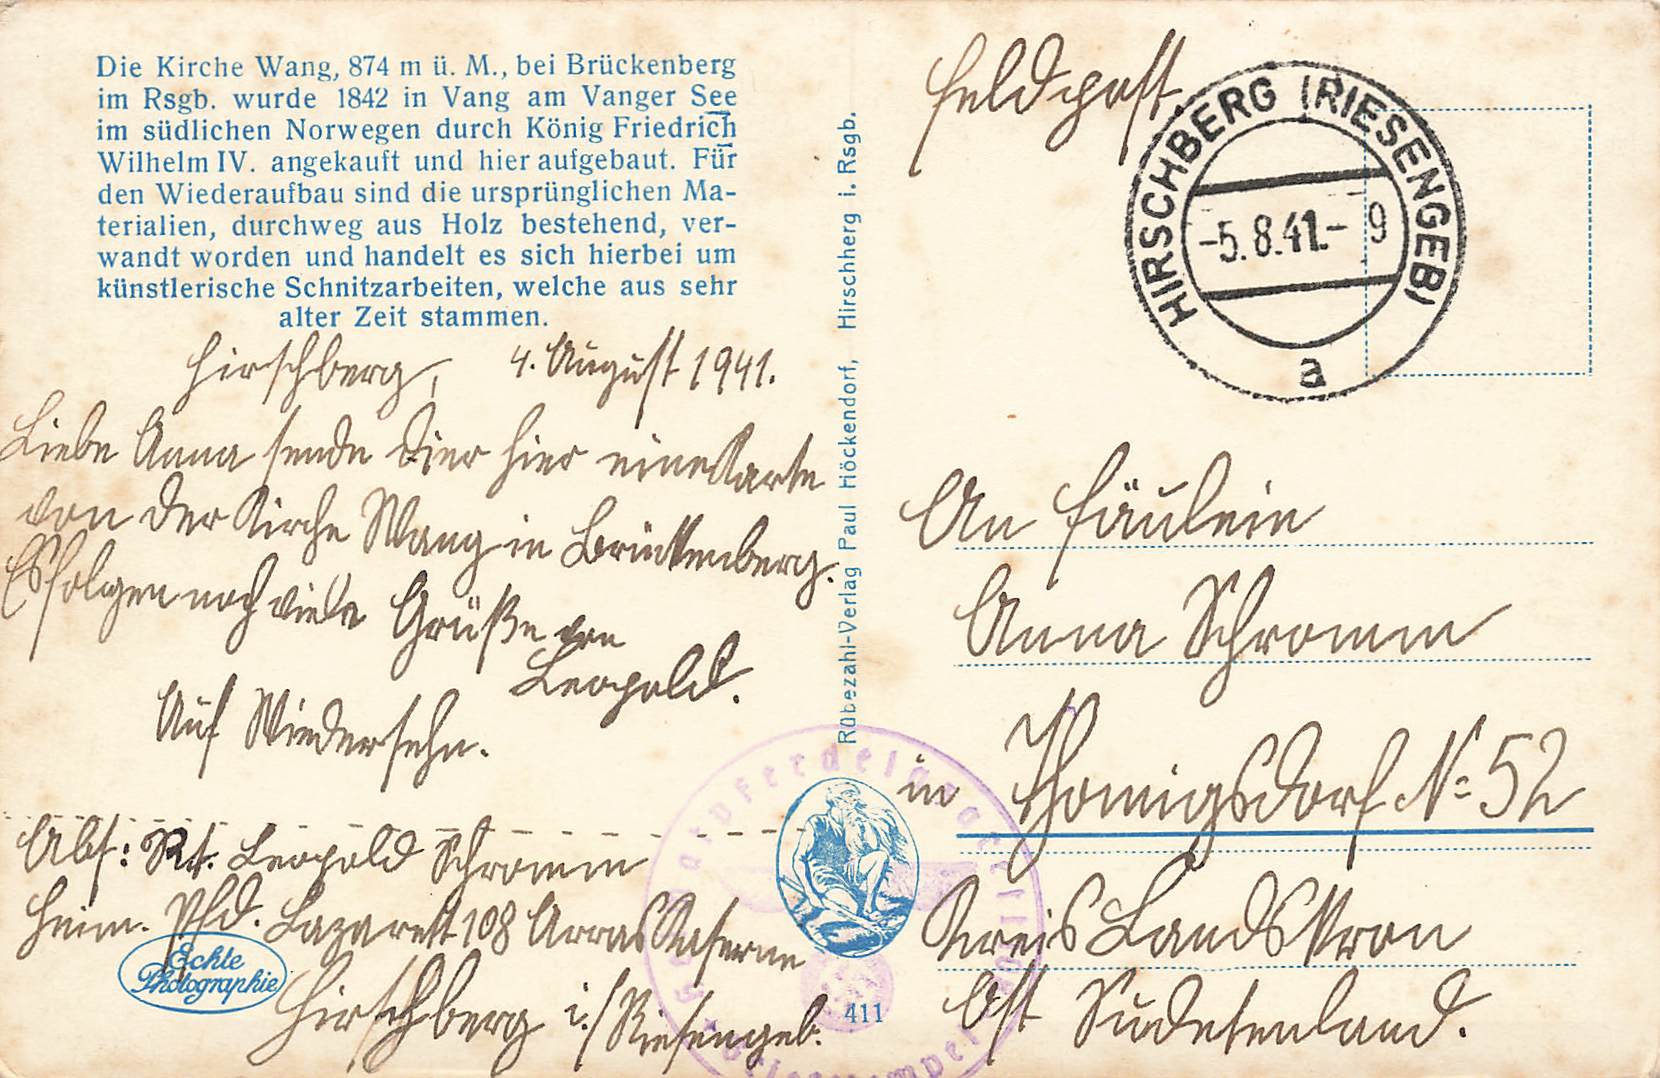 Die Kirche Wang, 874 m ü. M., bei Brückenberg
im Rsgb. wurde 1842 in Vang am Vanger See
im südlichen Norwegen durch König Friedrich
Wilhelm IV. angekauft und hier aufgebaut. Für
den Wiederaufbau sind die ursprünglichen Ma-
terialien, durchweg aus Holz bestehend, ver-
wandt worden und handelt es sich hierbei um
künstlerische Schnitzarbeiten, welche aus sehr
alter Zeit stammen.
Hirschberg, 4. August 1941.
Liebe Anna sende Dier hier eine Karte
von der Kirche Wang in Brückenberg.
Es folgen noch viele Grüße von
Leopold.
Auf Wiedersehn.
Abs: Leopold Schromm
Heim. Pfd. Lazarett 108 Arras Kaserne
Hirschberg i./Riesengeb.
Echte
Photographie
Rübezahl-Verlag Paul Höckendorf, Hirschberg i. Rsgb.
411
Feldpost
HIRSCHBERG (RIESENGEB)
-5.8.41.- 9
a
An Fäulein
Anna Schromm
in Thomigsdorf No 52
Kreis Landskron
Ost Sudetenland.